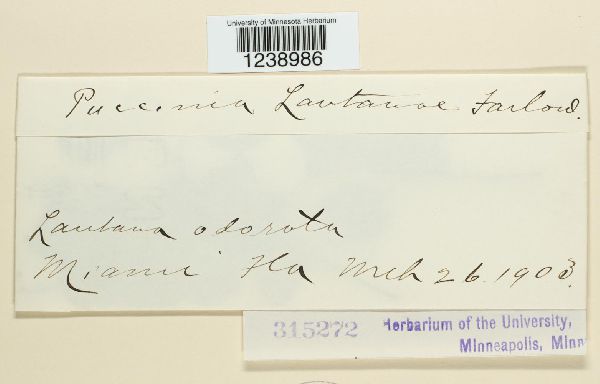 University of Minnesota Herbarium
1238986
Puccinia Lantanae Farlow.
Lantana odorata
Miami Fla Mch 26. 1903.
315272 Herbarium of the University,
Minneapolis, Minn